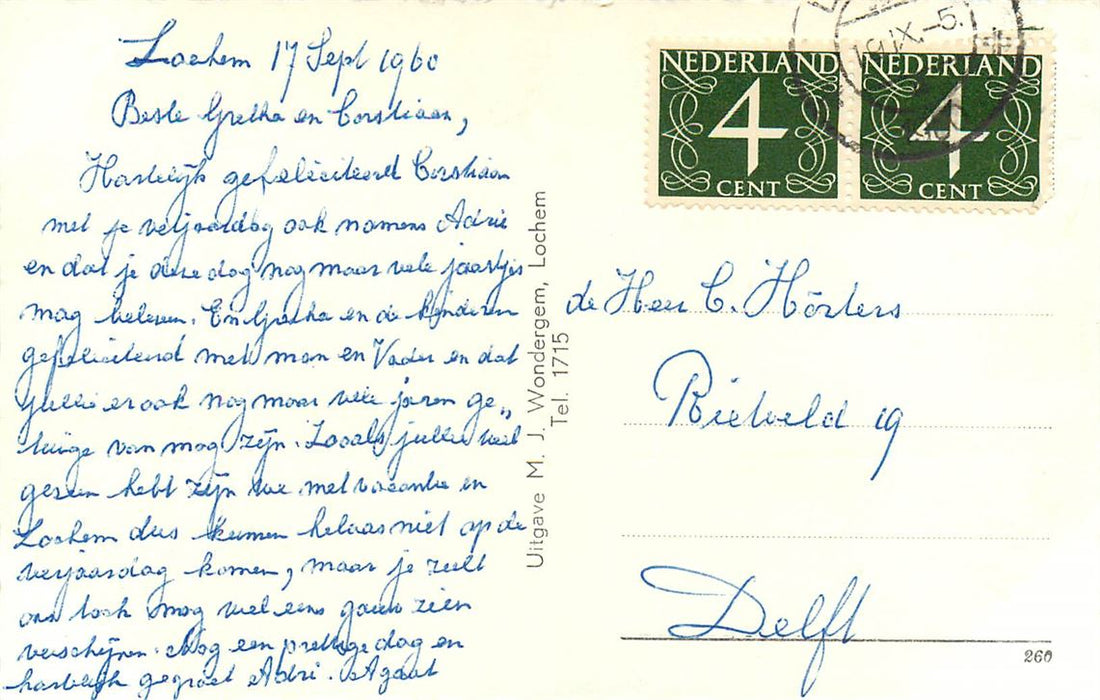 Lochem 17 Sept 1960
Beste Gretha en Corstiaan,
Hartelijk gefeliciteerd Corstiaan
met je verjaardag ook namens Adrie
en dat je deze dag nog maar vele jaartjes
mag beleven. En Gretha en de kinderen
gefeliciteerd met man en Vader en dat
jullie er ook nog maar vele jaren ge„
tuige van mog zijn. Zooals jullie wel
gezien hebt zijn we met vacantie in
Lochem dus kunnen helaas niet op de
verjaardag komen, maar je zult
ons toch nog wel eens gauw zien
verschijnen. Nog een prettige dag en
hartelijk gegroet Adri. Agaat
Uitgave M. J. Wondergem, Lochem
Tel. 1715
NEDERLAND
4
CENT
NEDERLAND
4
CENT
IX.-5.
de Heer C. Hörters
Rietveld 19
Delft
260